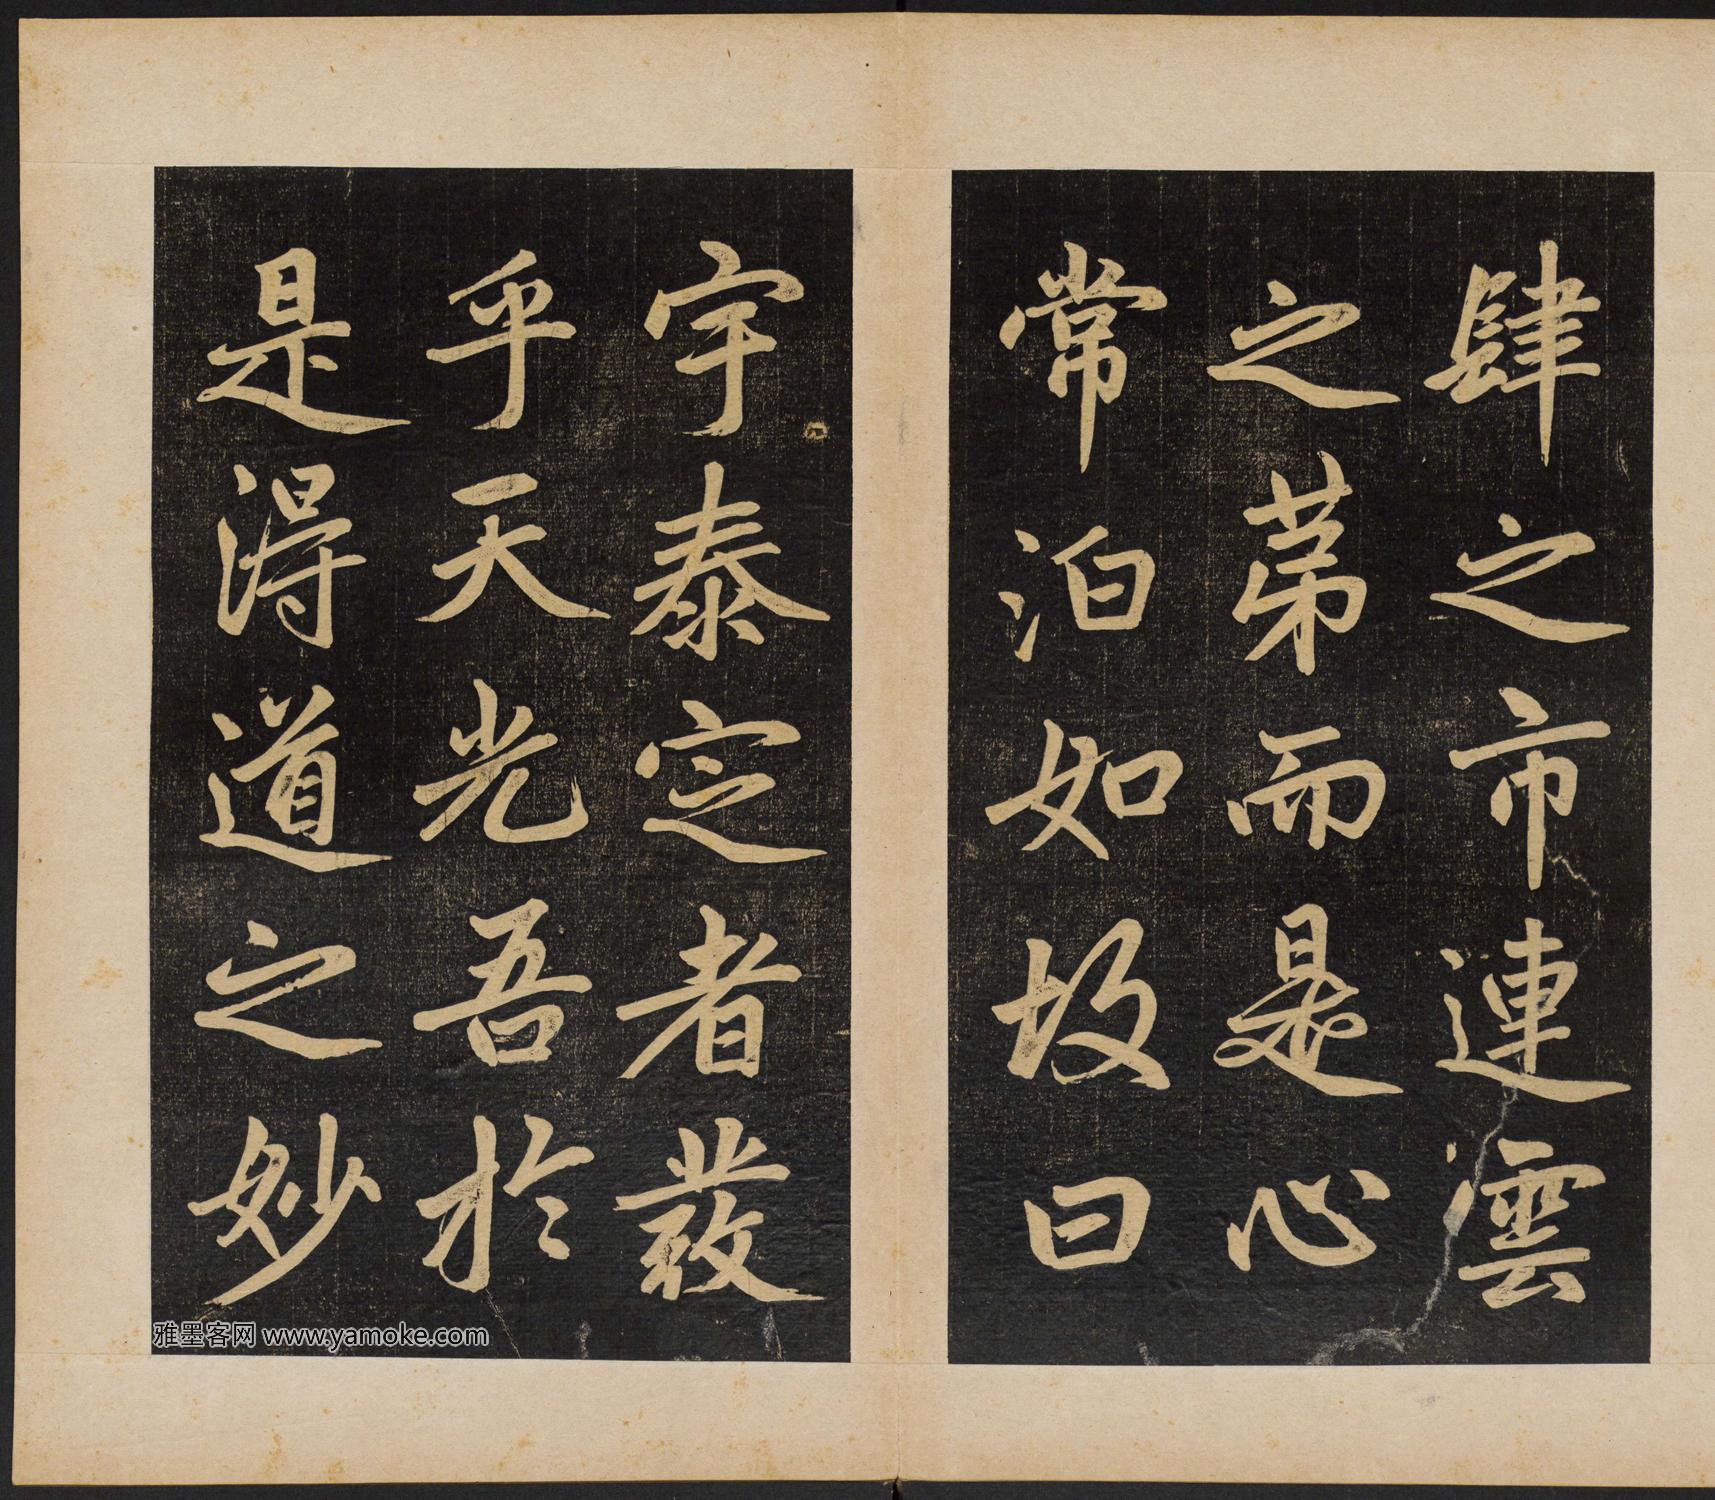 肆之市連雲
之苐而是心
常泊如故曰
宇泰定者發
乎天光吾於
是淂道之妙
雅墨客网 www.yamoke.com